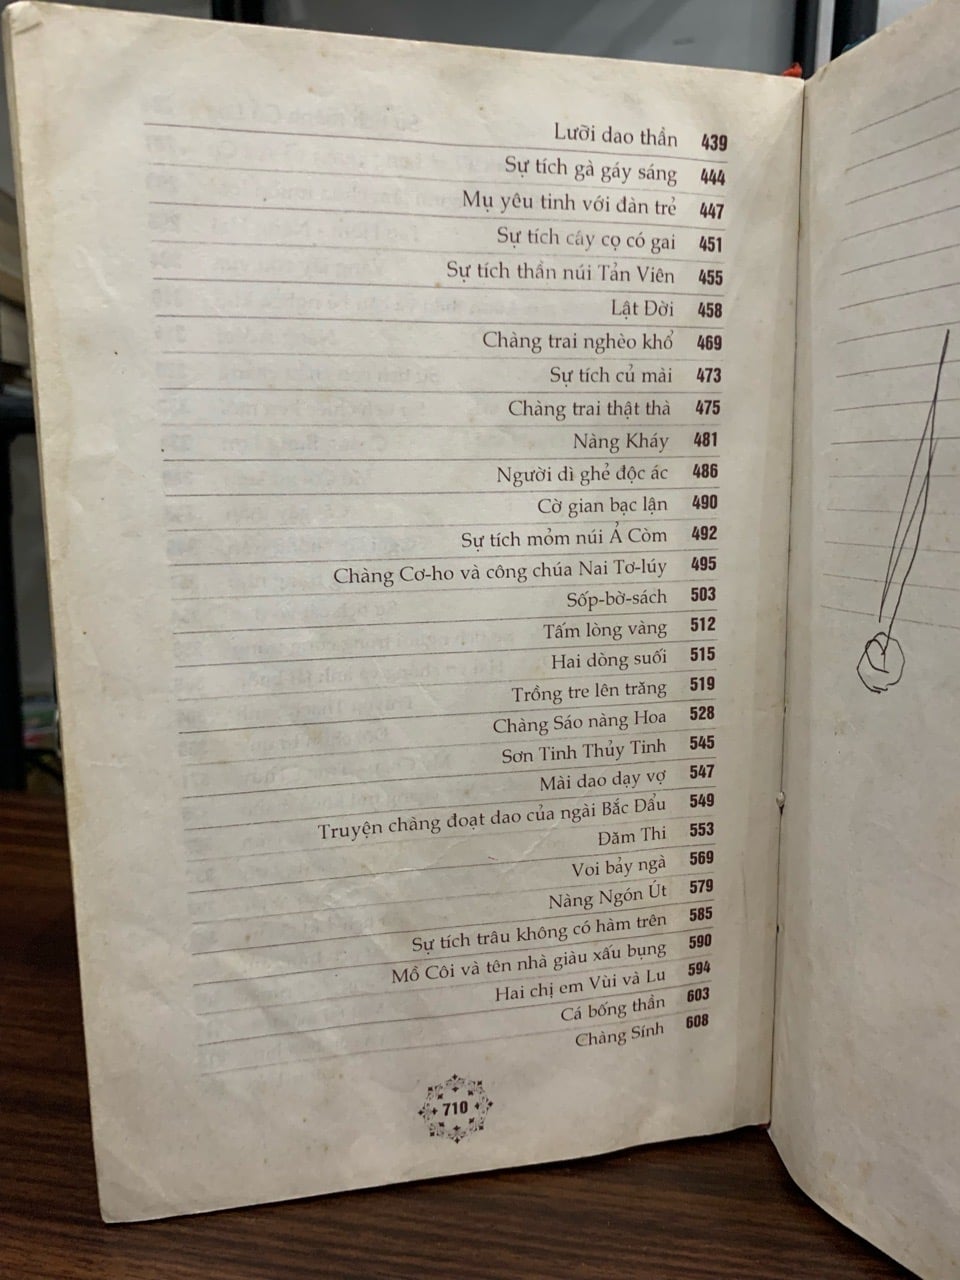 Lưỡi dao thần 439
Sự tích gà gáy sáng 444
Mụ yêu tinh với đàn trẻ 447
Sự tích cây cọ có gai 451
Sự tích thần núi Tản Viên 455
Lật Đời 458
Chàng trai nghèo khổ 469
Sự tích củ mài 473
Chàng trai thật thà 475
Nàng Kháy 481
Người dì ghẻ độc ác 486
Cờ gian bạc lận 490
Sự tích mỏm núi Ả Còm 492
Chàng Cơ-ho và công chúa Nai Tơ-lúy 495
Sốp-bờ-sách 503
Tấm lòng vàng 512
Hai dòng suối 515
Trồng tre lên trăng 519
Chàng Sáo nàng Hoa 528
Sơn Tinh Thủy Tinh 545
Mài dao dạy vợ 547
Truyện chàng đoạt dao của ngài Bắc Đẩu 549
Đăm Thi 553
Voi bảy ngà 569
Nàng Ngón Út 579
Sự tích trâu không có hàm trên 585
Mồ Côi và tên nhà giàu xấu bụng 590
Hai chị em Vùi và Lu 594
Cá bống thần 603
Chàng Sính 608
710